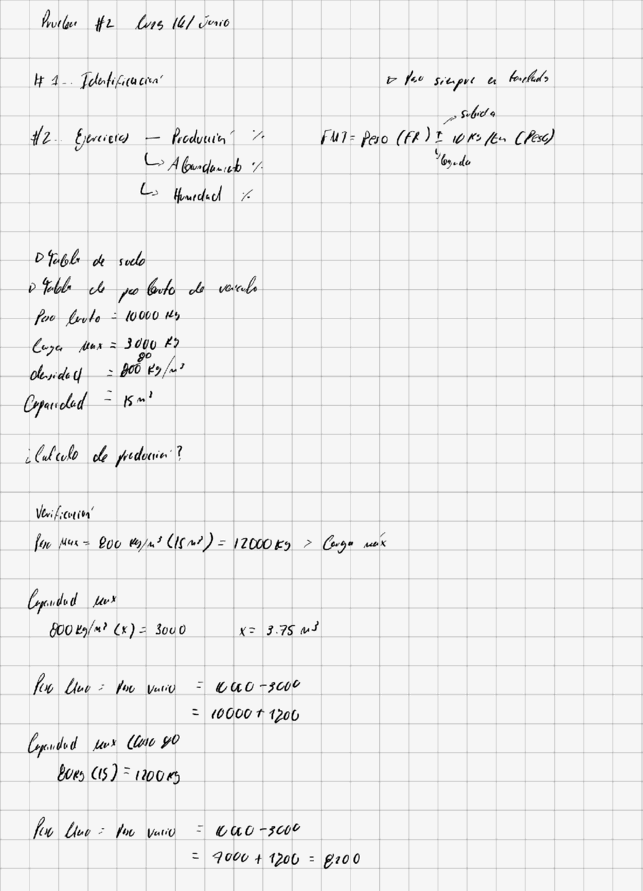 Prueba #2 lunes 16/junio
#1.. Identificación
▷ Peso siempre en toneladas
subida
#2.. Ejercicios — Producción %
FMT = Peso (FR) ± 10 Kg/ton (Peso)
bajada
↳ Abundamiento %
↳ Humedad %
▷ Tabla de suelo
▷ Tabla de peso bruto de
Peso bruto = 10000 Kg
Carga max = 3000 Kg
80
densidad = 800 Kg/m³
Capacidad = 15 m³
¿Calculo de producción?
Verificación
Peso Max = 800 Kg/m³ (15 m³) = 12000 Kg > Carga máx
Capacidad max
800 Kg/m³ (x) = 3000 x = 3.75 m³
Peso = Peso vacio = 10000 - 3000
= 10000 + 1200
Capacidad max (Caso 80
80Kg (15) = 1200 Kg
Peso = Peso vacio = 10000 - 3000
= 7000 + 1200 = 8200